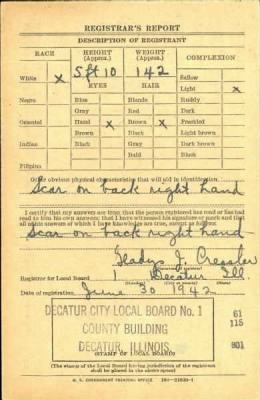 REGISTRAR'S REPORT
DESCRIPTION OF REGISTRANT
RACE HEIGHT (Approx.) WEIGHT (Approx.) COMPLEXION
White x 5 ft 10 142 Sallow
EYES HAIR Light x
Negro Blue Blonde Ruddy
Gray Red Dark
Oriental Hazel x Brown x Freckled
Brown Black Light brown
Indian Black Gray Dark brown
Bald Black
Filipino
Other obvious physical characteristics that will aid in identification
Scar on back right hand
I certify that my answers are true; that the person registered has read or has had
read to him his own answers; that I have witnessed his signature or mark and that
all of his answers of which I have knowledge are true, except as follows:
Scar on back right hand
Gladys J. Cressler
Registrar for Local Board 1 Decatur Ill.
Date of registration June 30 1942
DECATUR CITY LOCAL BOARD No. 1
COUNTY BUILDING
DECATUR, ILLINOIS
61
115
001
(STAMP OF LOCAL BOARD)
(The stamp of the Local Board having jurisdiction of the registrant
shall be placed in the above space)
U. S. GOVERNMENT PRINTING OFFICE